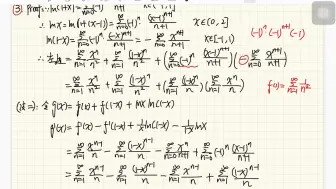 (3) Proof: ∵ ln(1+x) = Σ_{n=0}^{∞} (-1)^n x^{n+1}/(n+1)  x∈(-1, 1]
∴ lnx = ln(1+(x-1)) = Σ_{n=0}^{∞} (-1)^n (x-1)^{n+1}/(n+1)  x∈(0, 2]  (-1)^n (-1)^{n+1} (-1)
ln(1-x) = Σ_{n=0}^{∞} (-1)^n (-x)^{n+1}/(n+1) = -Σ_{n=0}^{∞} x^{n+1}/(n+1)  x∈[-1, 1)
∴ 左边 = Σ_{n=1}^{∞} x^n/n² + Σ_{n=1}^{∞} (1-x)^n/n² + (Σ_{n=0}^{∞} (-1)^n (x-1)^{n+1}/(n+1)) (-Σ_{n=0}^{∞} x^{n+1}/(n+1))
= Σ_{n=1}^{∞} x^n/n² + Σ_{n=1}^{∞} (1-x)^n/n² + (Σ_{n=1}^{∞} (1-x)^n/n)(Σ_{n=1}^{∞} x^n/n)  f(1) = Σ_{n=1}^{∞} 1/n²
(法二): 令 g(x) = f(x) + f(1-x) + lnx ln(1-x)
g'(x) = f'(x) - f'(1-x) + 1/x ln(1-x) - 1/(1-x) lnx
= Σ_{n=1}^{∞} x^{n-1}/n - Σ_{n=1}^{∞} (1-x)^{n-1}/n - Σ_{n=0}^{∞} x^n/(n+1) + Σ_{n=0}^{∞} (-1)^n (x-1)^n/(n+1)
= Σ_{n=1}^{∞} x^{n-1}/n - Σ_{n=1}^{∞} (1-x)^{n-1}/n - Σ_{n=1}^{∞} x^{n-1}/n + Σ_{n=1}^{∞} (1-x)^{n-1}/n